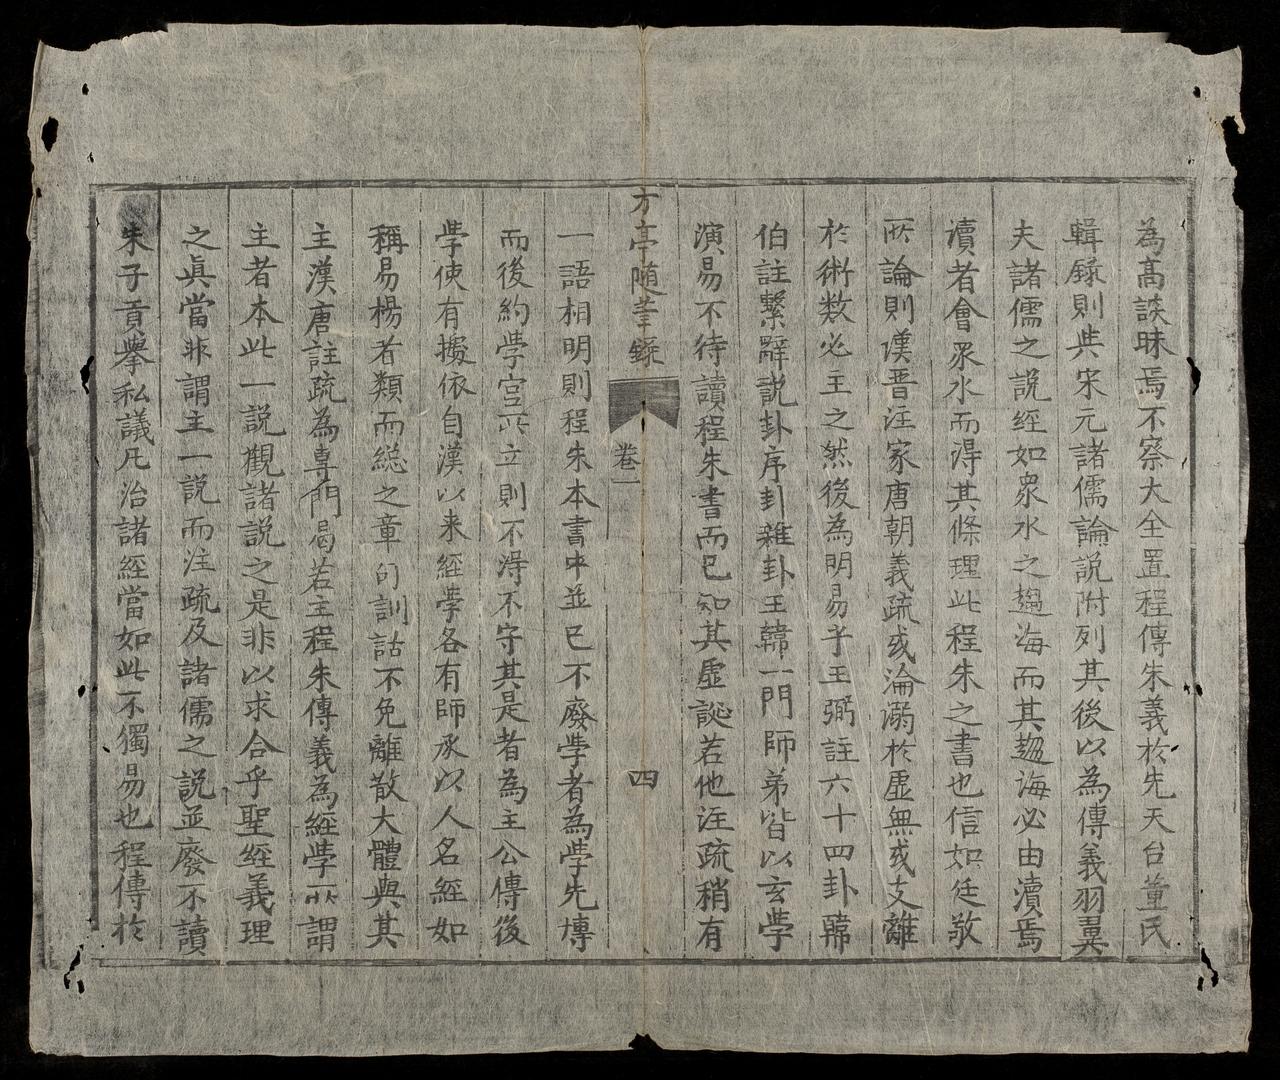 為髙談昧焉不察大全置程傳朱義於先天台董氏
輯録則與宋元諸儒論説附列其後以為傳義羽翼
夫諸儒之説經如衆水之趨海而其趨海必由瀆焉
瀆者會衆水而淂其條理此程朱之書也信如廷敬
所論則漢晋注家唐朝義疏或淪溺於虚無或支離
於術数必主之然後為明易乎王弼註六十四卦韓
伯註繫辭説卦序卦雜卦王韓一門師弟皆以玄學
演易不待讀程朱書而已知其虚誕若他注疏稍有
方亭隨筆錄
卷一
四
一語相明則程朱本書中並已不廢學者為學先博
而後約學宫所立則不淂不守其是者為主公傳後
學使有據依自漢以来經學各有師承以人名經如
稱易楊者類而総之章句訓詁不免離散大體與其
主漢唐註疏為專門曷若主程朱傳義為經學所謂
主者本此一説觀諸説之是非以求合乎聖經義理
之眞當非謂主一説而注疏及諸儒之説並廢不讀
朱子貢擧私議凡治諸經當如此不獨易也程傳於